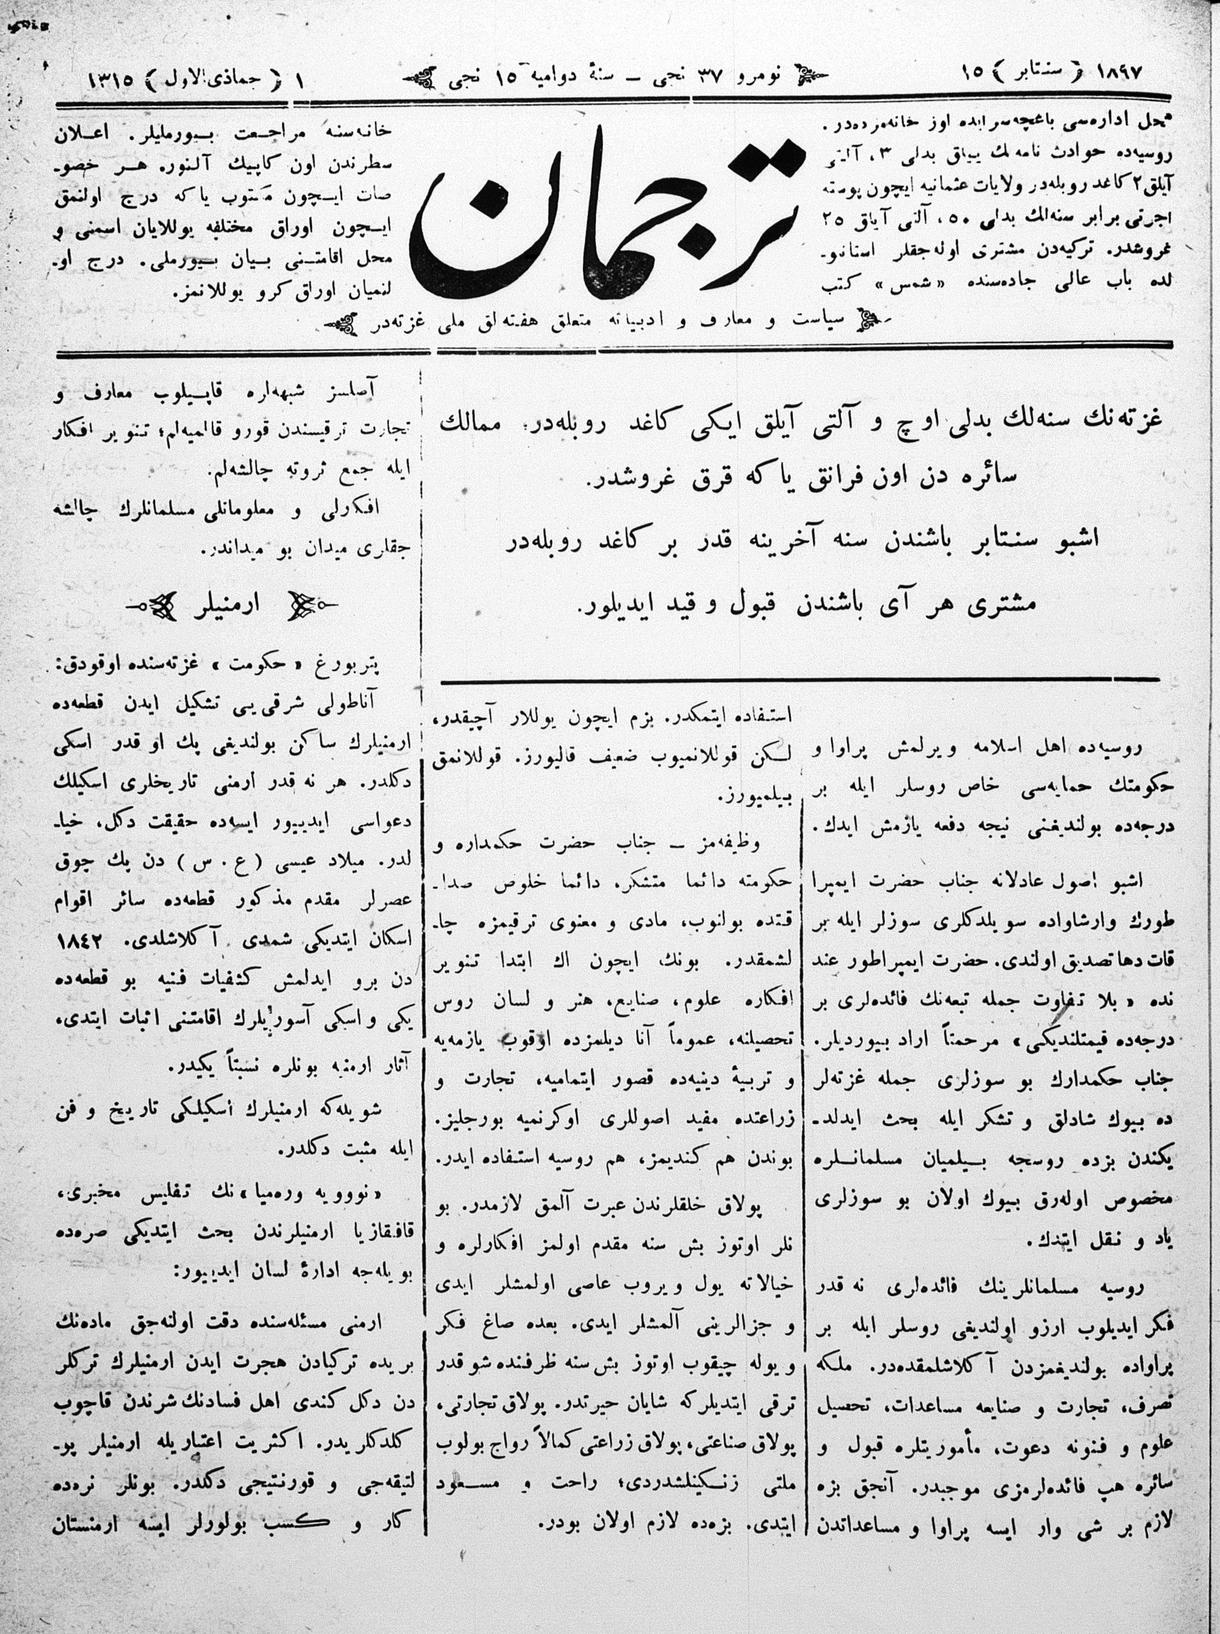 ١٨٩٧ ﴿ سنتابر ﴾ ١٥
نومرو ٣٧ نجی ــ سنهٔ دوامیه ١٥ نجی
١ ﴿ جماذی الاول ﴾ ١٣١٥
محل اداره‌سی باغچه‌سرایده اوز خانه‌مزده‌در.
روسیه‌ده حوادث نامه‌لك ییللق بدلی ٣، آلتی
آیلق ٢ كاغد روبله‌در ولایات عثمانیه ایچون پوسته
اجرتی برابر سنه‌لك بدلی ٥٠، آلتی آیلق ٢٥
غروشدر. تركیه‌دن مشتری اوله‌جقلر استانبو-
لده باب عالی جاده‌سنده «شمس» كتب
ترجمان
خانه‌سنه مراجعت بیورملیلر. اعلان
سطرندن اون كاپیك آلنور. هر خصو-
صات ایچون مكتوب یاكه درج اولنمق
ایچون اوراق مختلفه یوللایان اسمنی و
محل اقامتنی بیان بیورملی. درج او-
لنمیان اوراق كرو یوللانمز.
سیاست و معارف و ادبیاته متعلق هفته‌لق ملی غزته‌در
غزته‌نك سنه‌لك بدلی اوچ و آلتی آیلق ایكی كاغد روبله‌در؛ ممالك
سائره دن اون فرانق یاكه قرق غروشدر.
اشبو سنتابر باشندن سنه آخرینه قدر بر كاغد روبله‌در
مشتری هر آی باشندن قبول و قید ایدیلور.
روسیه‌ده اهل اسلامه ویرلمش پراوا و
حكومتك حمایه‌سی خاص روسلر ایله بر
درجه‌ده بولندیغنی نیجه دفعه یازمش ایدك.
اشبو اصول عادلانه جناب حضرت ایمپرا
طورك وارشاواده سویلدكلری سوزلر ایله بر
قات دها تصدیق اولندی. حضرت ایمپراطور عند
نده «بلا تفاوت جمله تبعه‌نك فائده‌لری بر
درجه‌ده قیمتلندیكی» مرحمتاً اراد بیوردیلر.
جناب حكمدارك بو سوزلری جمله غزته‌لر
ده بیوك شادلق و تشكر ایله بحث ایدلد-
یكندن بزده روسجه بیلمیان مسلمانلره
مخصوص اوله‌رق بیوك اولان بو سوزلری
یاد و نقل ایتدك.
روسیه مسلمانلرینك فائده‌لری نه قدر
فكر ایدیلوب ارزو اولندیغی روسلر ایله بر
پراواده بولندیغمزدن آكلاشلمقده‌در. ملكه
تصرف، تجارت و صنایعه مساعدات، تحصیل
علوم و فنونه دعوت، مأموریتلره قبول و
سائره هپ فائده‌لرمزی موجبدر. آنجق بزه
لازم بر شی وار ایسه پراوا و مساعداتدن
استفاده ایتمكدر. بزم ایچون یوللار آچیقدر،
لكن قوللانمیوب ضعیف قالیورز. قوللانمق
بیلمیورز.
وظیفه‌مز ــ جناب حضرت حكمداره و
حكومته دائما متشكر. دائما خلوص صدا-
قتده بولنوب، مادی و معنوی ترقیمزه چا-
لشمقدر. بونك ایچون اك ابتدا تنویر
افكاره علوم، صنایع، هنر و لسان روس
تحصیلنه، عموماً آنا دیلمزده اوقوب یازمه‌یه
و تربیهٔ دینیه‌ده قصور ایتمامیه، تجارت و
زراعتده مفید اصوللری اوكرنمیه بورجلیز.
بوندن هم كندیمز، هم روسیه استفاده ایدر.
پولاق خلقلرندن عبرت آلمق لازمدر. بو
نلر اوتوز بش سنه مقدم اولمز افكارلره و
خیالاته یول ویروب عاصی اولمشلر ایدی
و جزالرینی آلمشلر ایدی. بعده صاغ فكر
و یوله چیقوب اوتوز بش سنه ظرفنده شو قدر
ترقی ایتدیلركه شایان حیرتدر. پولاق تجارتی،
پولاق صناعتی، پولاق زراعتی كمالاً رواج بولوب
ملتی زنكینلشدردی؛ راحت و مسعود
ایتدی. بزه‌ده لازم اولان بودر.
آصلسز شبهه‌لره قاپیلوب معارف و
تجارت ترقیسندن قورو قالمیه‌لم؛ تنویر افكار
ایله جمع ثروته چالشه‌لم.
افكارلی و معلوماتلی مسلمانلرك چالشه
جقلری میدان بو میداندر.
ارمنیلر
پتربورغ «حكومت» غزته‌سنده اوقودق:
آناطولی شرقی‌یی تشكیل ایدن قطعه‌ده
ارمنیلرك ساكن بولندیغی پك او قدر اسكی
دكلدر. هر نه قدر ارمنی تاریخلری اسكیلك
دعواسی ایدییور ایسه‌ده حقیقت دكل، خیا-
لدر. میلاد عیسی (ع. س) دن پك چوق
عصرلر مقدم مذكور قطعه‌ده سائر اقوام
اسكان ایتدیكی شمدی آكلاشلدی. ١٨٤٢
دن برو ایدلمش كشفیات فنیه بو قطعه‌ده
یكی و اسكی آسوریلرك اقامتنی اثبات ایتدی،
آثار ارمنیه بونلره نسبتاً یكیدر.
شویله‌كه ارمنیلرك اسكیلكی تاریخ و فن
ایله مثبت دكلدر.
«نوویه وره‌میا» نك تفلیس مخبری،
قافقازیا ارمنیلرندن بحث ایتدیكی صره‌ده
بویله‌جه ادارهٔ لسان ایدییور:
ارمنی مسئله‌سنده دقت اولنه‌جق ماده‌نك
بریده تركیادن هجرت ایدن ارمنیلرك تركلر
دن دكل كندی اهل فسادنك شرندن قاچوب
كلدكلریدر. اكثریت اعتباریله ارمنیلر پو-
لتیقه‌جی و قورنتیجی دكلدر. بونلر نره‌ده
كار و كسب بولورلر ایسه ارمنستان